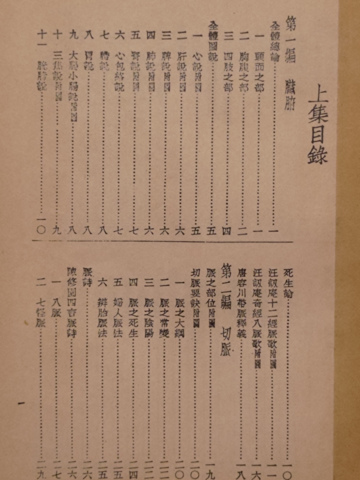 上集目錄
第一編　臟腑
全體總論……一
一　頭面之部……一
二　胸腹之部……二
三　四肢之部……四
全體圖說……五
一　心說附圖……五
二　肝說附圖……六
三　脾說附圖……六
四　肺說附圖……六
五　腎說附圖……七
六　心包絡說……七
七　膽說……八
八　胃說附圖……八
九　大腸小腸說附圖……八
十　三焦說附圖……九
十一　膀胱說……一〇
死生論……一〇
汪訒庵十二經脈歌附圖……一一
汪訒庵奇經八脈歌附圖……一六
唐容川帶脈釋義……一八
第二編　切脈
脈之部位附圖……一九
切脈要訣附圖……二〇
一　脈之大綱……二〇
二　脈之常變……二二
三　脈之陰陽……二二
四　脈之死生……二四
五　婦人脈法……二五
六　辨胎脈法……二五
脈詩……二六
陳修園四言脈詩……二六
一　八脈……二七
二　七怪脈……二九